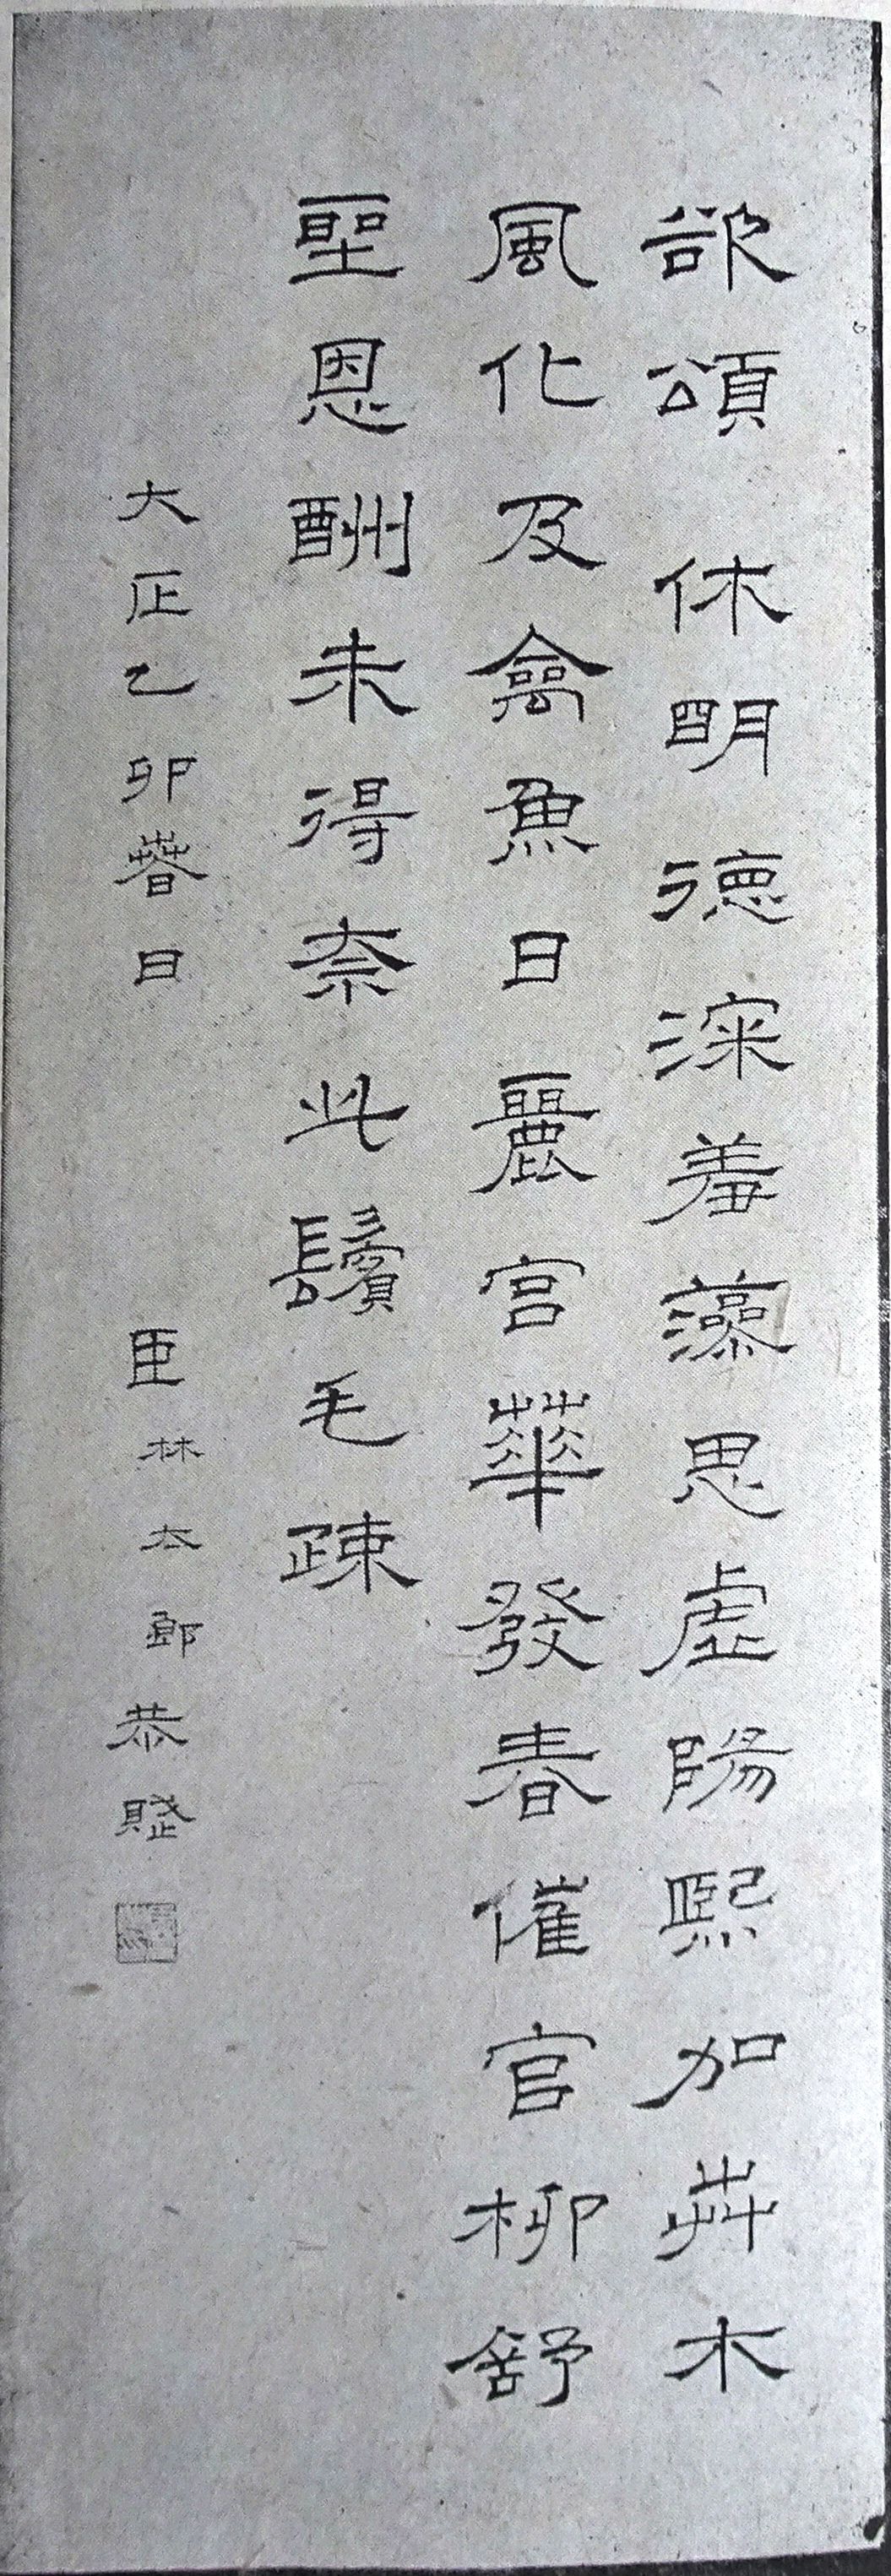 欲頌 休明德深羞藻思虛陽熙加艸木
風化及禽魚日麗宮華發春催官柳舒
聖恩酬未得奈此鬢毛疎
大正乙卯萅日 臣林太郎恭賦